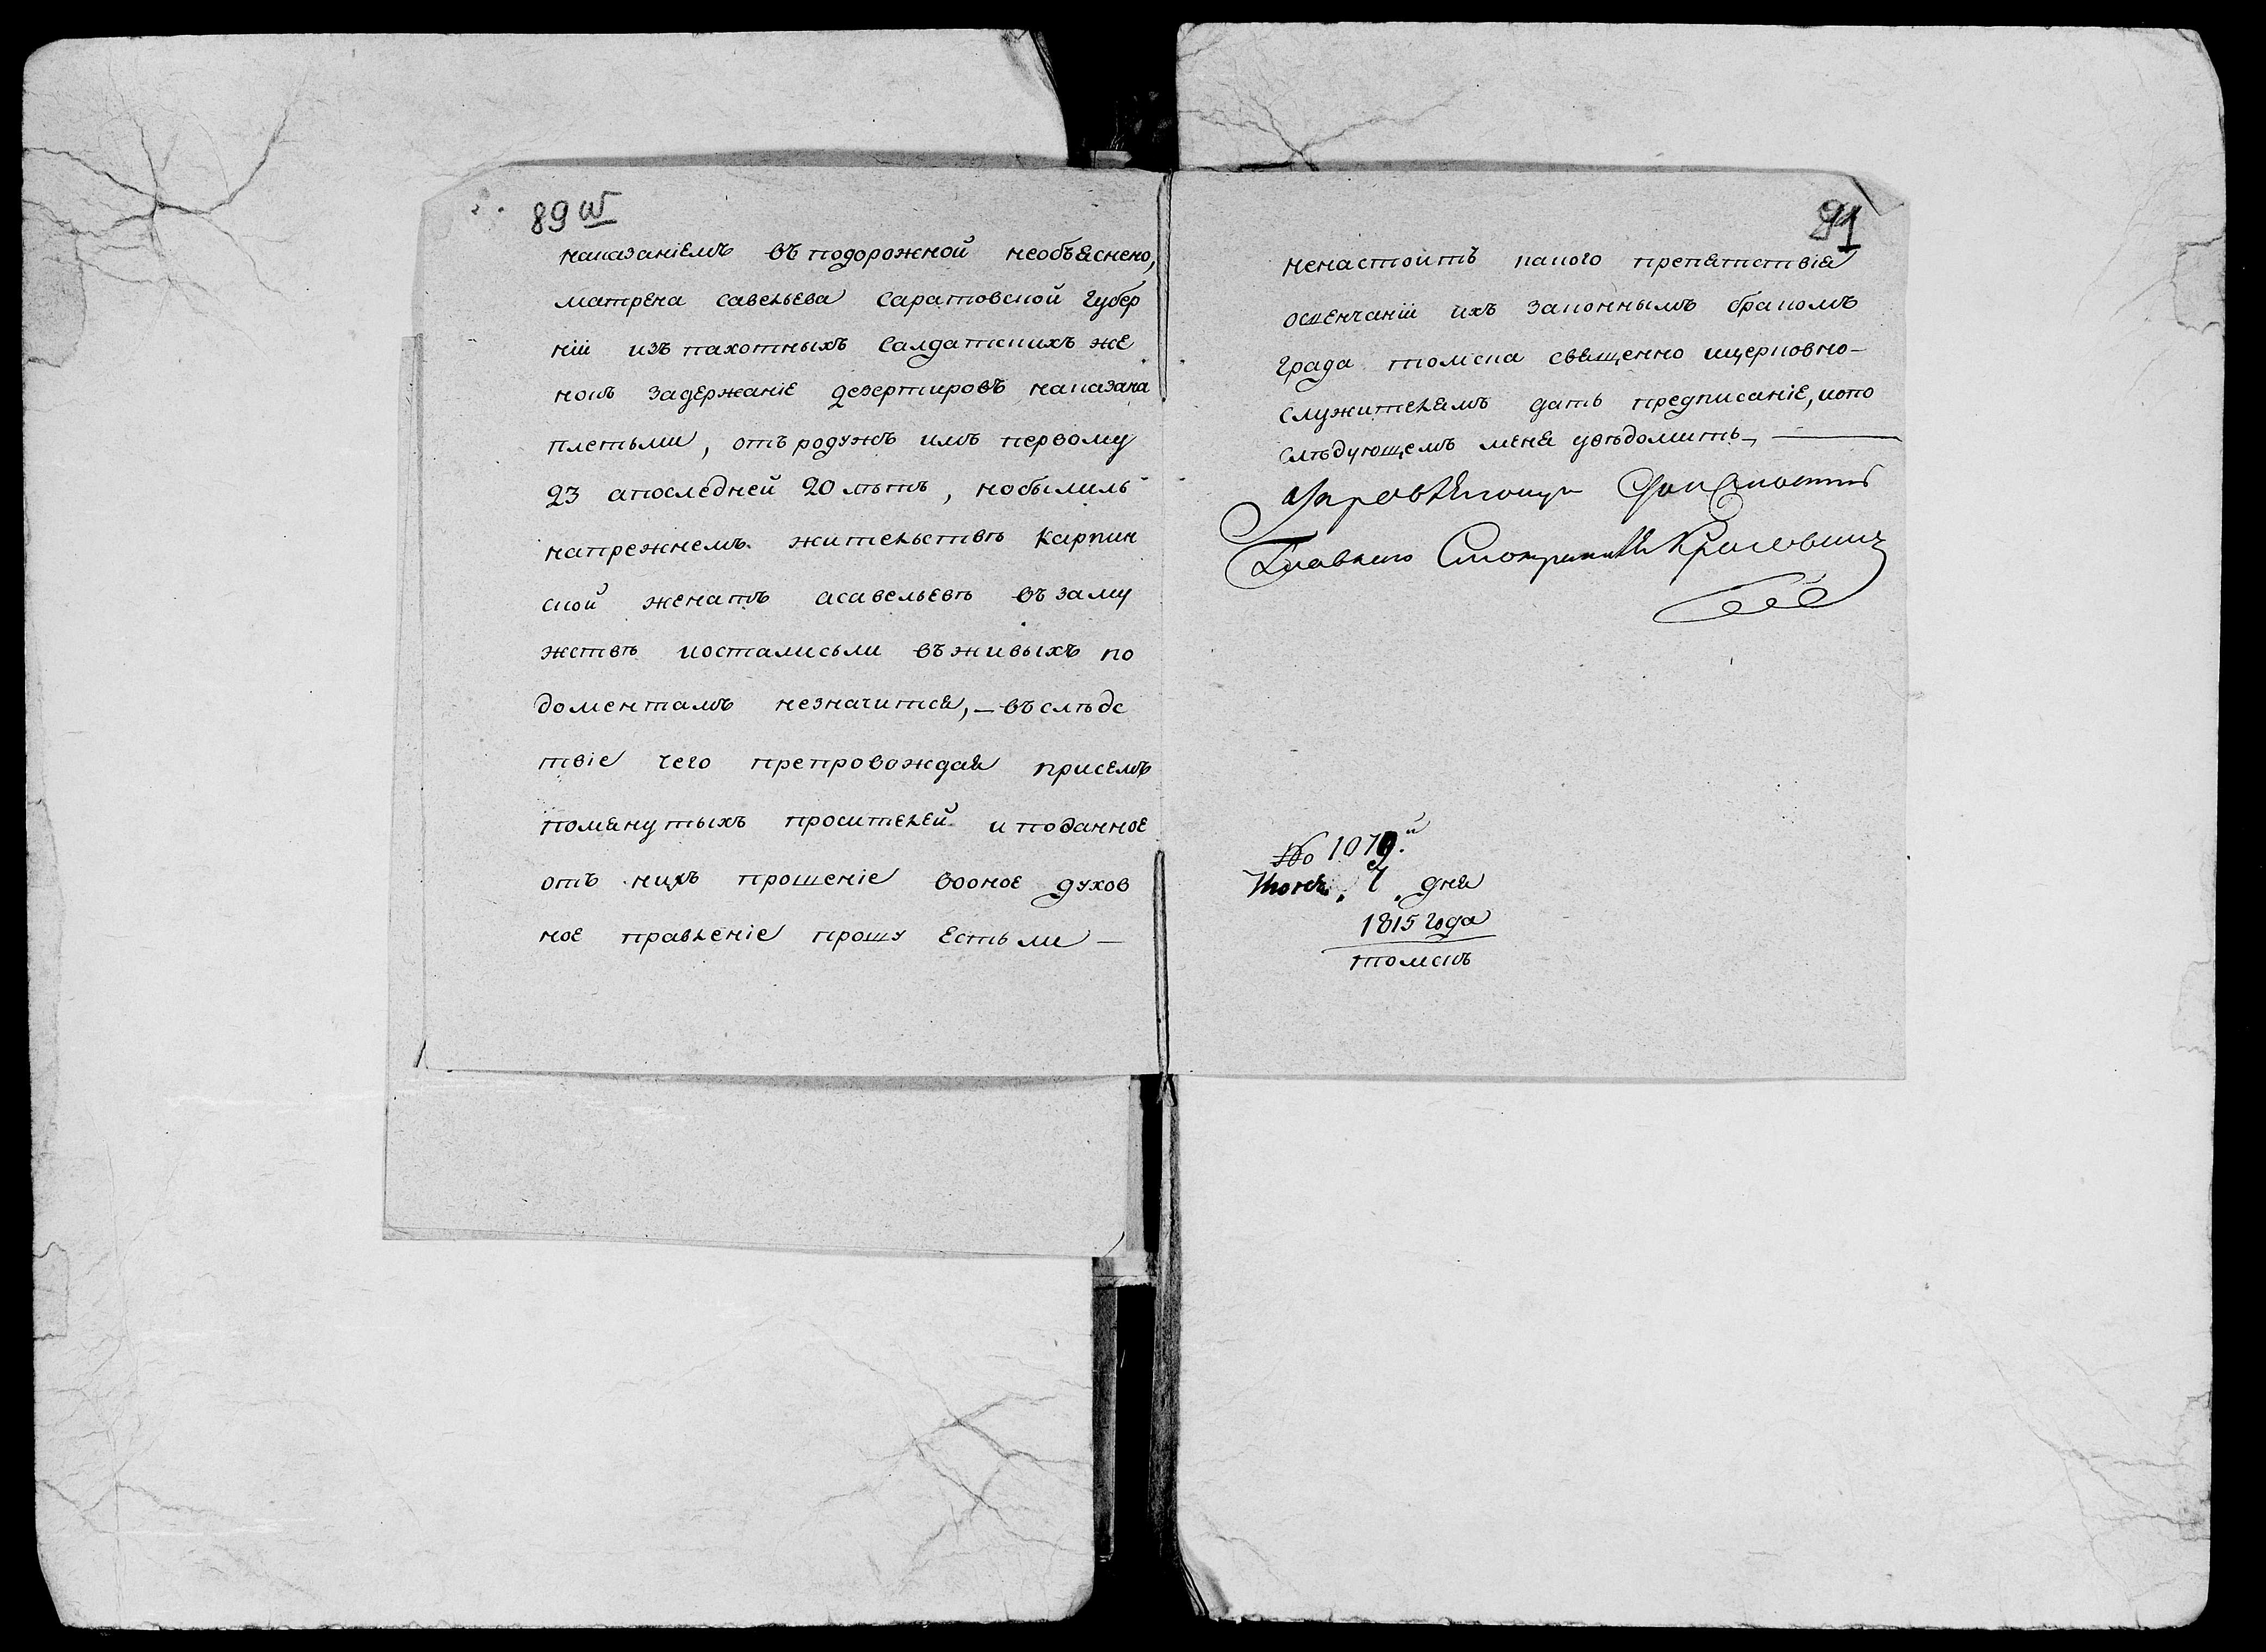 89 об
наказаніемъ въ подорожной необъяснено,
матрена савельева саратовской губер
ніи изъ пахотныхъ салдатскихъ же
нокъ задержаніе дезертировъ наказана
плетьми, отъ родужъ имъ первому
23 апоследней 20 лѣтъ, нобылиль
напрежнемъ жительствѣ карпин
ской женатъ асавельевѣ взаму
жствѣ иосталисьли въживыхъ по
доментамъ незначится, – въслѣдс
твіе чего препровождая присемъ
помянутыхъ просителей и поданное
отъ нихъ прошеніе вооное духов
ное правленіе прошу естьли –
91
ненастоитъ какого препятствія
освенчаніи ихъ законнымъ бракомъ
града томска священно ицерковно-
служителямъ дать предписаніе, ипо
слѣдующемъ меня увѣдомить, —
Управляющій
Главнаго Смотрителя
№ 1079.й
Июня „ 7 „ дня
1815 года
томскъ